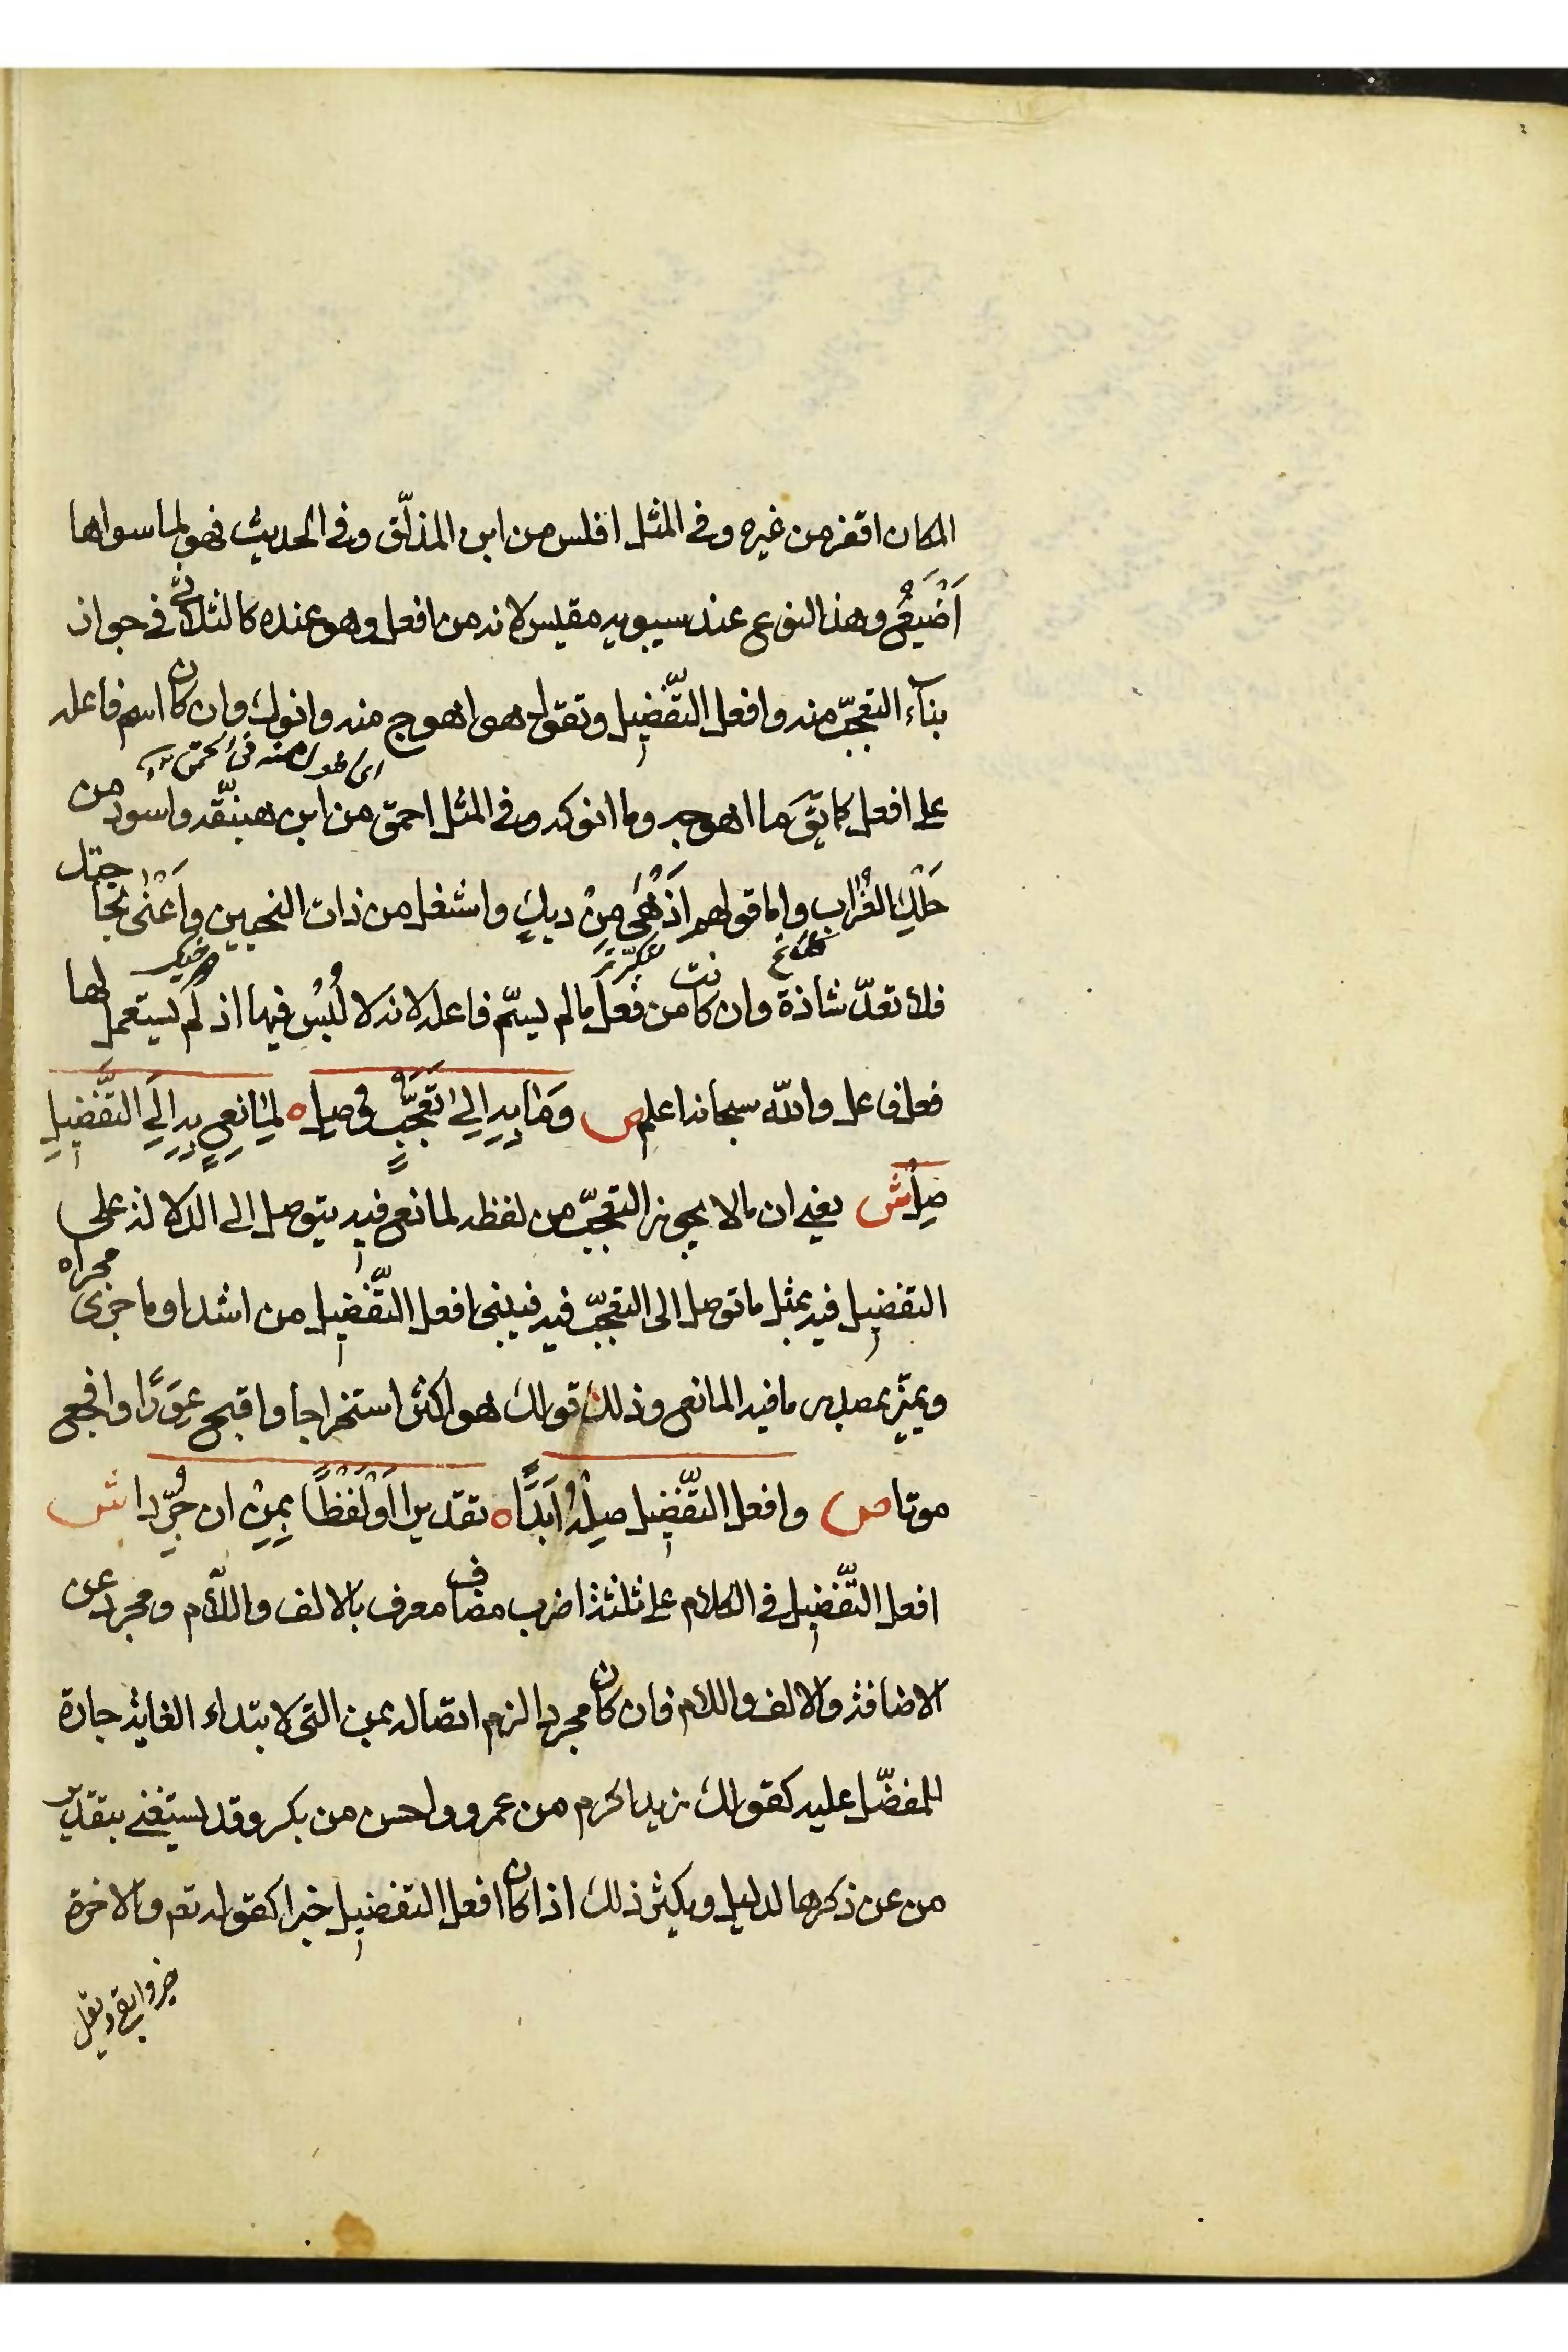 المكان اقفر من غيره وفي المثل افلس من ابن المذلّق وفي الحديث فهو لما سواها
اَضْيَعُ وهذا النوع عند سيبويه مقيس لانه من افعل وهو عنده كالثلاثيّ في جواز
بنآء التعجّب منه وافعل التّفضيل وتقول هو اهوج منه وانوك وان كان اسم فاعله
على افعل كما يق ما اهوجه وما انوكه وفي المثل احمق من ابن هبنّقه واسود من
حَلَكِ الغُراب واما قولهم اَزْهٰى مِنْ ديكٍ واشغل من ذات النحيين واَعْنٰى بحاجتك
فلا تعدّ شاذة وان كانت من فعل ما لم يسمّ فاعله لانه لا لُبْس فيها اذ لم يستعمل لها
فعل فاعل والله سبحانه اعلم ص وَمَا بِهِ اِلىٰ تَعَجُّبٍ وُصِلْ ه لِمٰانِعٍ بِهِ اِلَى التَّفْضِيلِ
صِلْ ش يعني ان ما لا يجوز التعجّب من لفظه لمانع فيه يتوصل الى الدلالة على
التفضيل فيه بمثل ما توصل الى التعجّب فيه فيبنى افعل التّفضيل من اشد او ما جرى مجراه
ويميّز بمصدر ما فيه المانع وذلك قولك هو اكثر استخراجا واقبح عَوَرًا وافجع
موتا ص وافعل التّفضيل صِلْهُ اَبَدًا ه تقديرا اَوْ لَفْظًا بِمِنْ ان جُرِّدا ش
افعل التّفضيل في الكلام على ثلثة اضرب مضاف معرف بالالف واللّام ومجرد عن
الاضافة والالف واللام فان كان مجردا لزم اتصاله بمن التي لابتداء الغاية جارة
للمفضّل عليه كقولك زيد اكرم من عمرو واحسن من بكر وقد يستغنى بتقدير
من عن ذكرها لدليل ويكثر ذلك اذا كان افعل التفضيل خبرا كقوله تعم والاخرة
خير وابقى ويقل